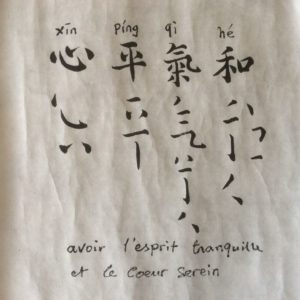 xīn píng qì hé
心 平 氣 和
avoir l'esprit tranquille
et le coeur serein